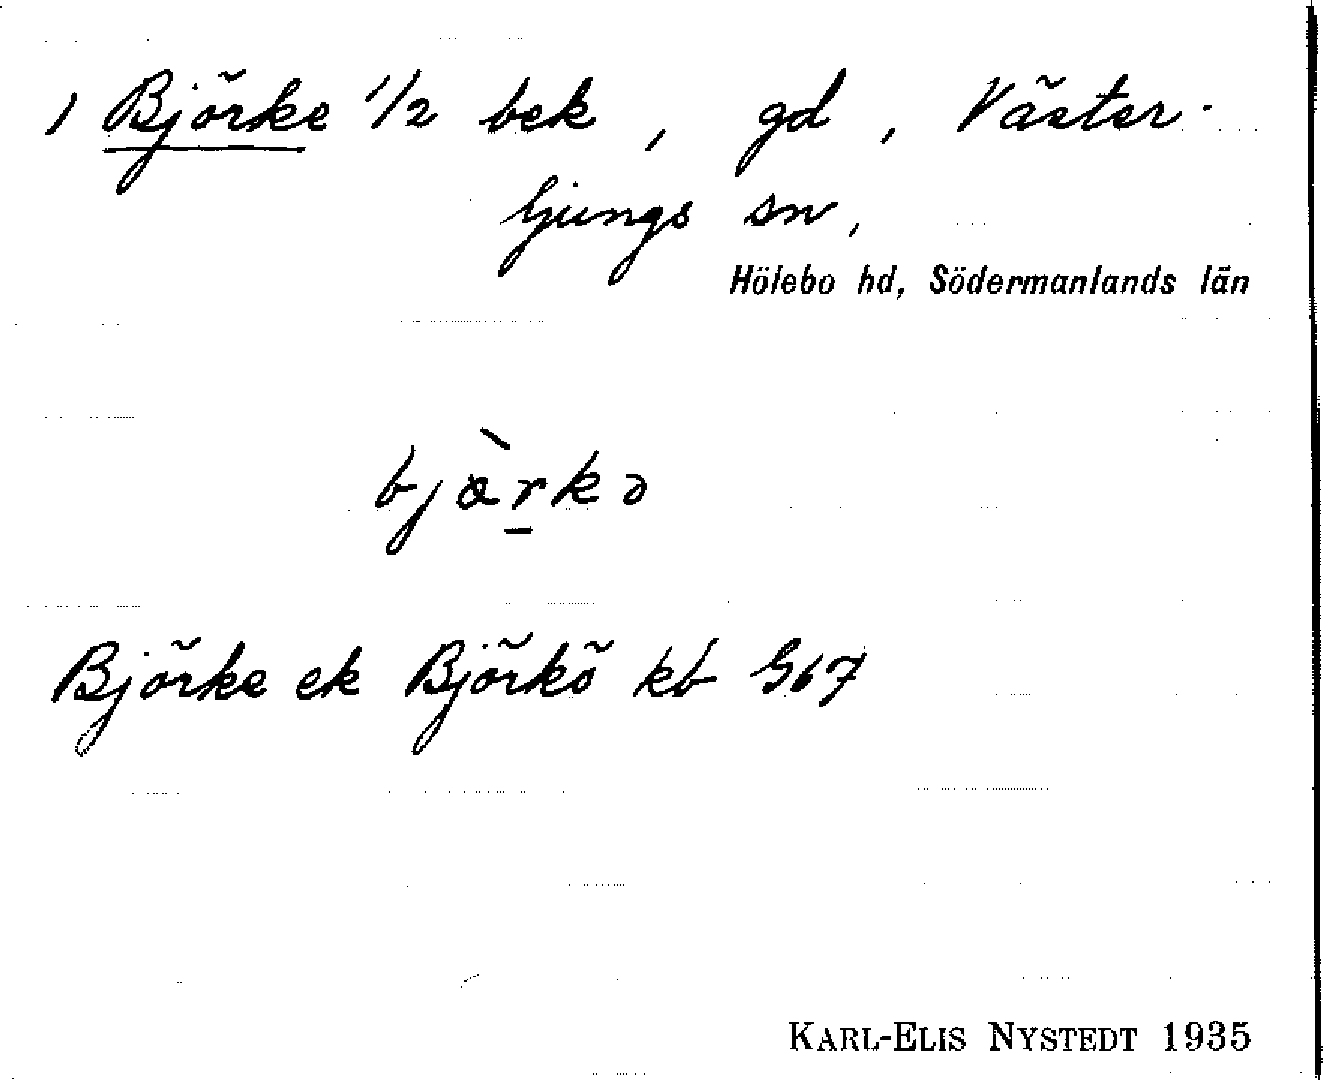 1 Björke 1/2 bek, gd, Väster-
ljungs sn,
Hölebo hd, Södermanlands län
bjàrkə
Björke ek Björkö kb G67
KARL-ELIS NYSTEDT 1935